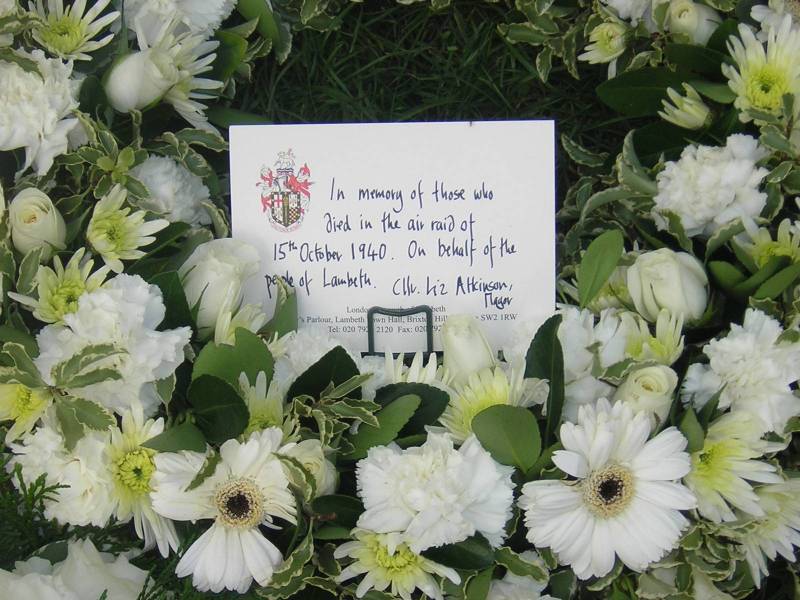 In memory of those who
died in the air raid of
15th October 1940. On behalf of the
people of Lambeth. Cllr. Liz Atkinson,
Mayor
London
Parlour, Lambeth Town Hall, Brixton Hill SW2 1RW
Tel: 020 2120 Fax: